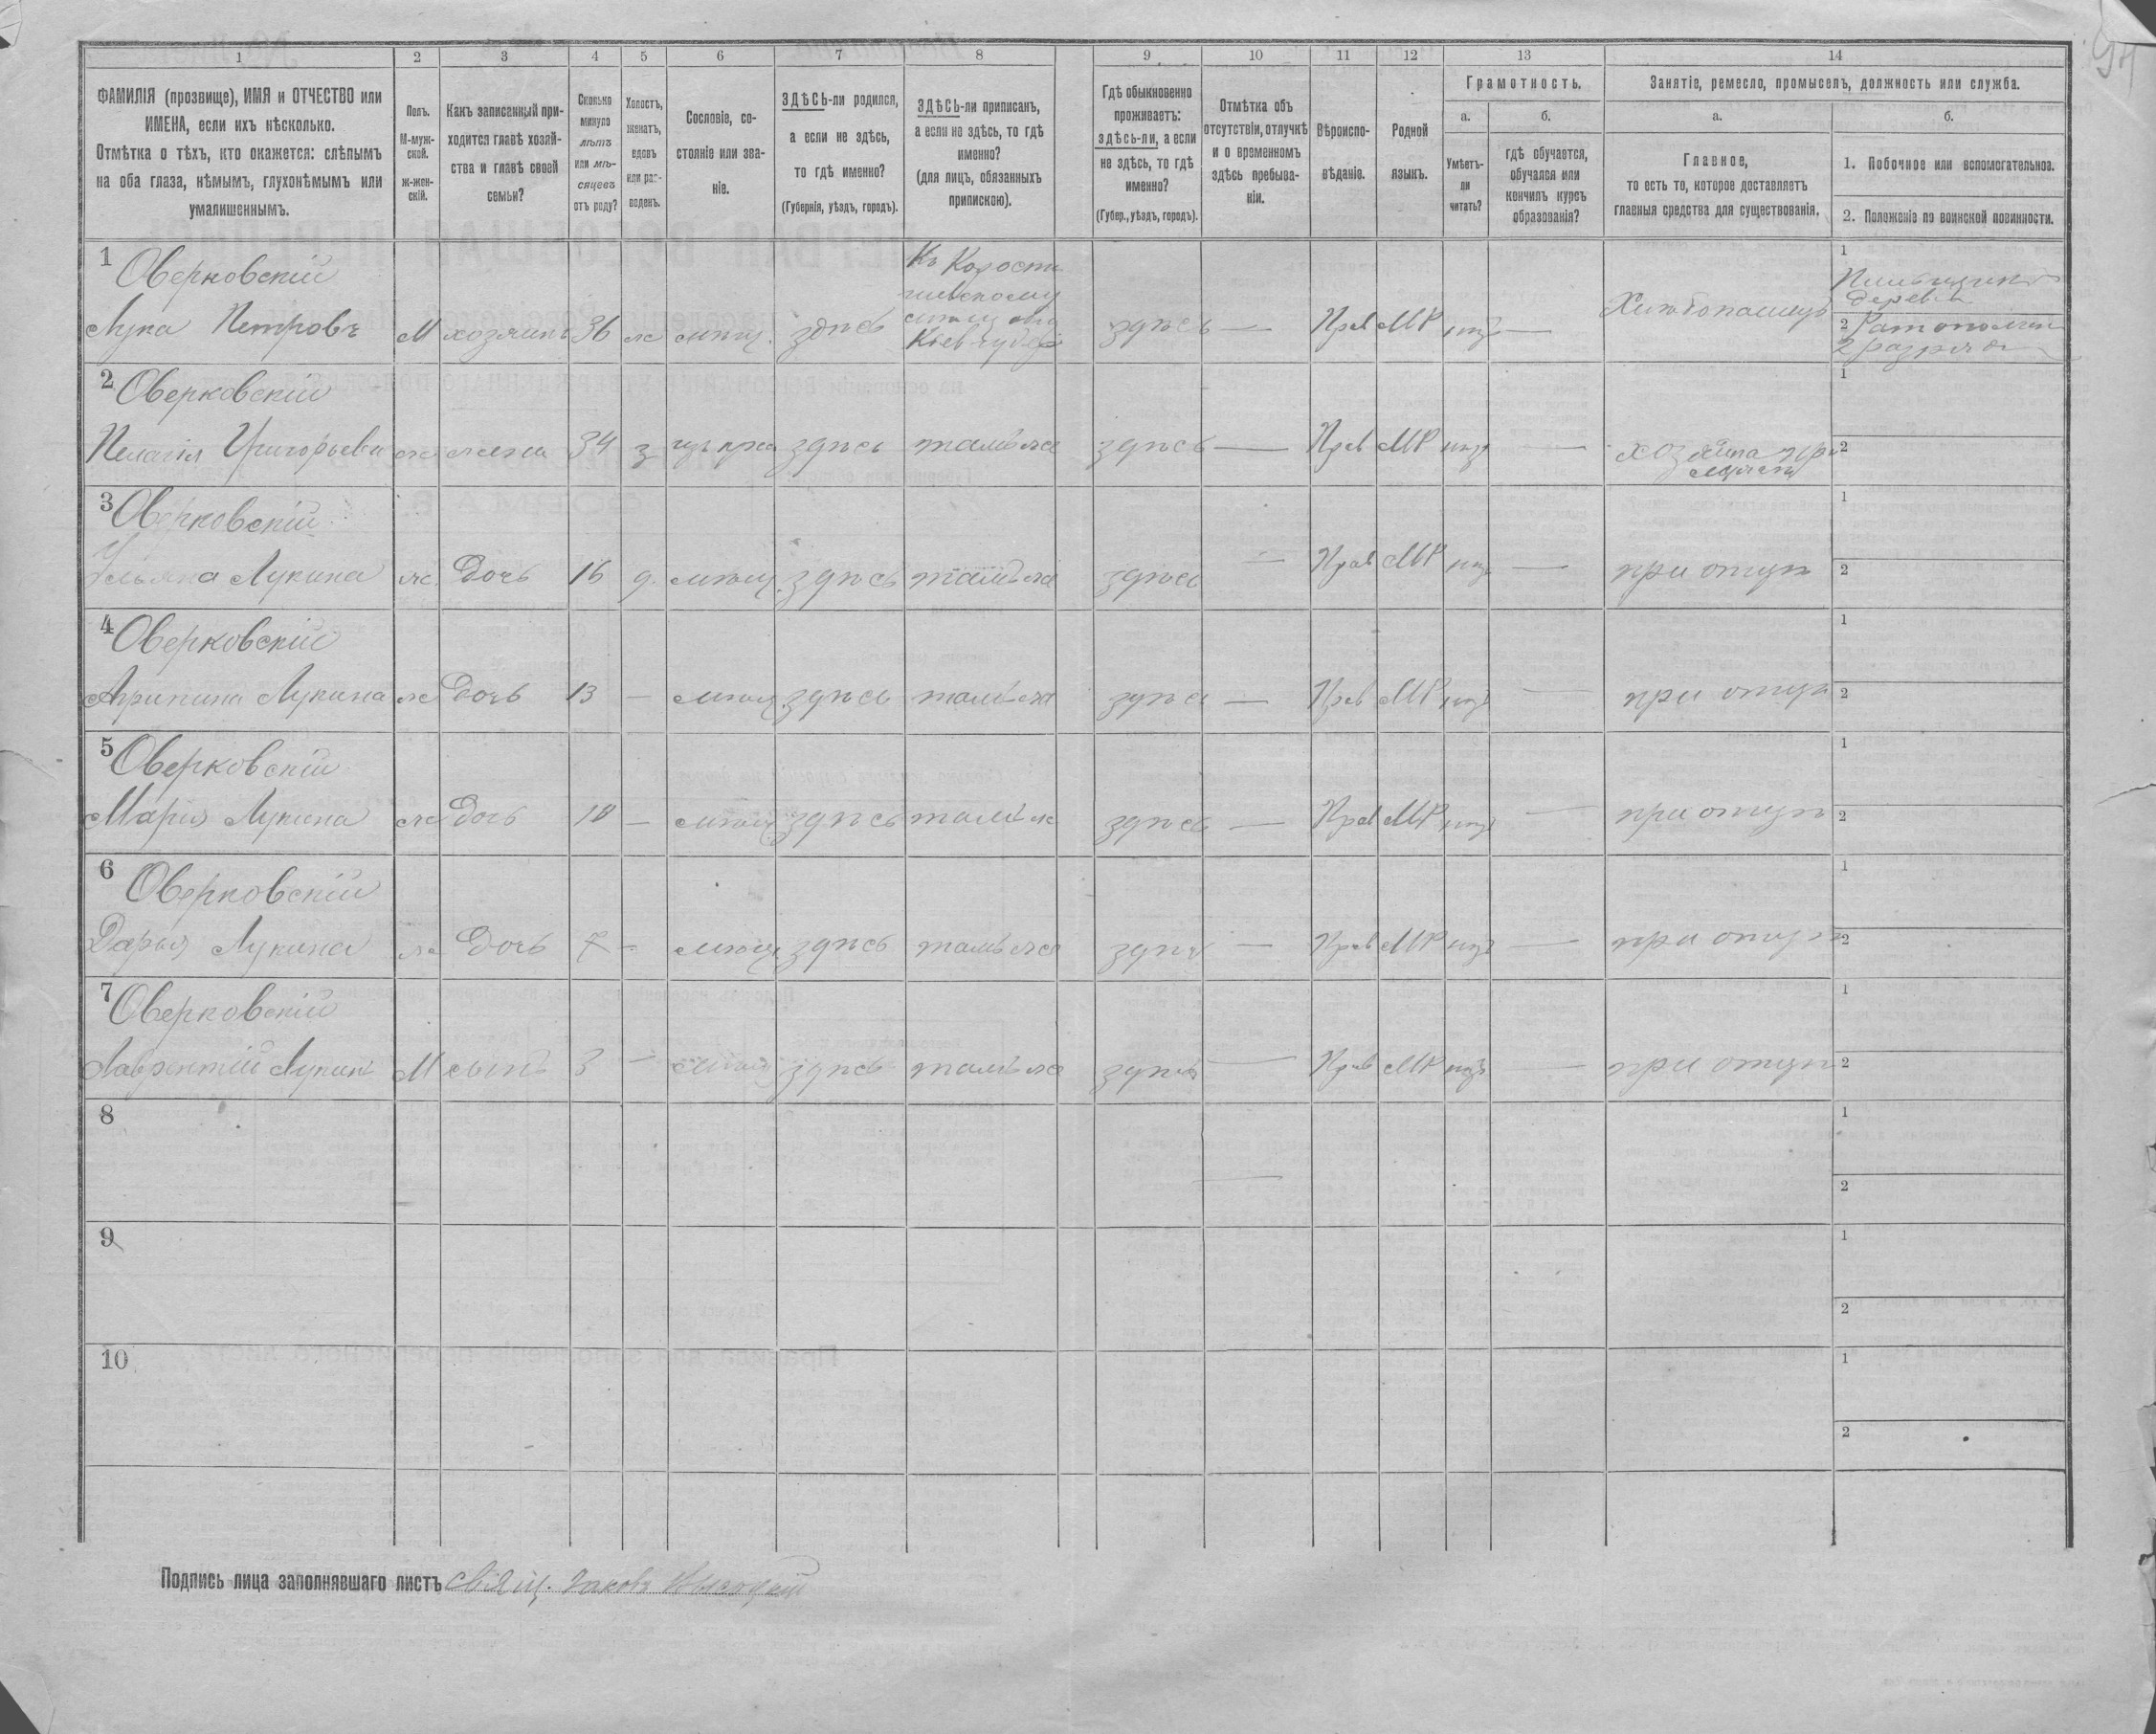 94
1 2 3 4 5 6 7 8 9 10 11 12 13 14
ФАМИЛІЯ (прозвище), ИМЯ и ОТЧЕСТВО или
ИМЕНА, если ихъ нѣсколько.
Отмѣтка о тѣхъ, кто окажется: слѣпымъ
на оба глаза, нѣмымъ, глухонѣмымъ или
умалишеннымъ.
Полъ.
М-муж-
ской.
ж-жен-
скій.
Какъ записанный при-
ходится главѣ хозяй-
ства и главѣ своей
семьи?
Сколько
минуло
лѣтъ
или мѣ-
сяцевъ
отъ роду?
Холостъ,
женатъ,
вдовъ
или раз-
веденъ.
Сословіе, со-
стояніе или зва-
ніе.
ЗДѢСЬ-ли родился,
а если не здѣсь,
то гдѣ именно?
(Губернія, уѣздъ, городъ).
ЗДѢСЬ-ли приписанъ,
а если не здѣсь, то гдѣ
именно?
(для лицъ, обязанныхъ
припискою).
Гдѣ обыкновенно
проживаетъ:
здѣсь-ли, а если
не здѣсь, то гдѣ
именно?
(Губер., уѣздъ, городъ).
Отмѣтка объ
отсутствіи, отлучкѣ
и о временномъ
здѣсь пребыва-
ніи.
Вѣроиспо-
вѣданіе.
Родной
языкъ.
Грамотность.
а.
Умѣетъ-
ли
читать?
б.
гдѣ обучается,
обучался или
кончилъ курсъ
образованія?
Занятіе, ремесло, промыселъ, должность или служба.
а.
Главное,
то есть то, которое доставляетъ
главныя средства для существованія.
б.
1. Побочное или вспомогательное.
2. Положеніе по воинской повинности.
1 Оверковскій
Лука Петровъ М хозяинъ 36 ж мѣщ. здѣсь
Къ
Кіев губер
здѣсь — Прав МР нѣтъ —
Хлѣбопашецъ
1
2
2 разряда
2 Оверковскій
Пелагія Григорьева ж жена 34 з здѣсь тамъ же здѣсь — Прав МР нѣтъ —
1
2
3 Оверковскій
Ульяна Лукина ж. Дочь 16 д. мѣщ. здѣсь тамъ же здѣсь — Прав МР нѣтъ — при отцѣ
1
2
4 Оверковскій
Агрипина Лукина ж Дочь 13 — мѣщ. здѣсь тамъ же здѣсь — Прав МР нѣтъ — при отцѣ
1
2
5 Оверковскій
Марія Лукина ж Дочь 10 — мѣщ здѣсь тамъ же здѣсь — Прав МР нѣтъ — при отцѣ
1
2
6 Оверковскій
Дарья Лукина ж Дочь 7 — мѣщ здѣсь тамъ же здѣсь — Прав МР нѣтъ — при отцѣ
1
2
7 Оверковскій
Лаврентій Лукинъ М сынъ 3 — мѣщ здѣсь тамъ же здѣсь — Прав МР нѣтъ — при отцѣ
1
2
8
1
2
9
1
2
10
1
2
Подпись лица заполнявшаго листъ свящ. Іаковъ